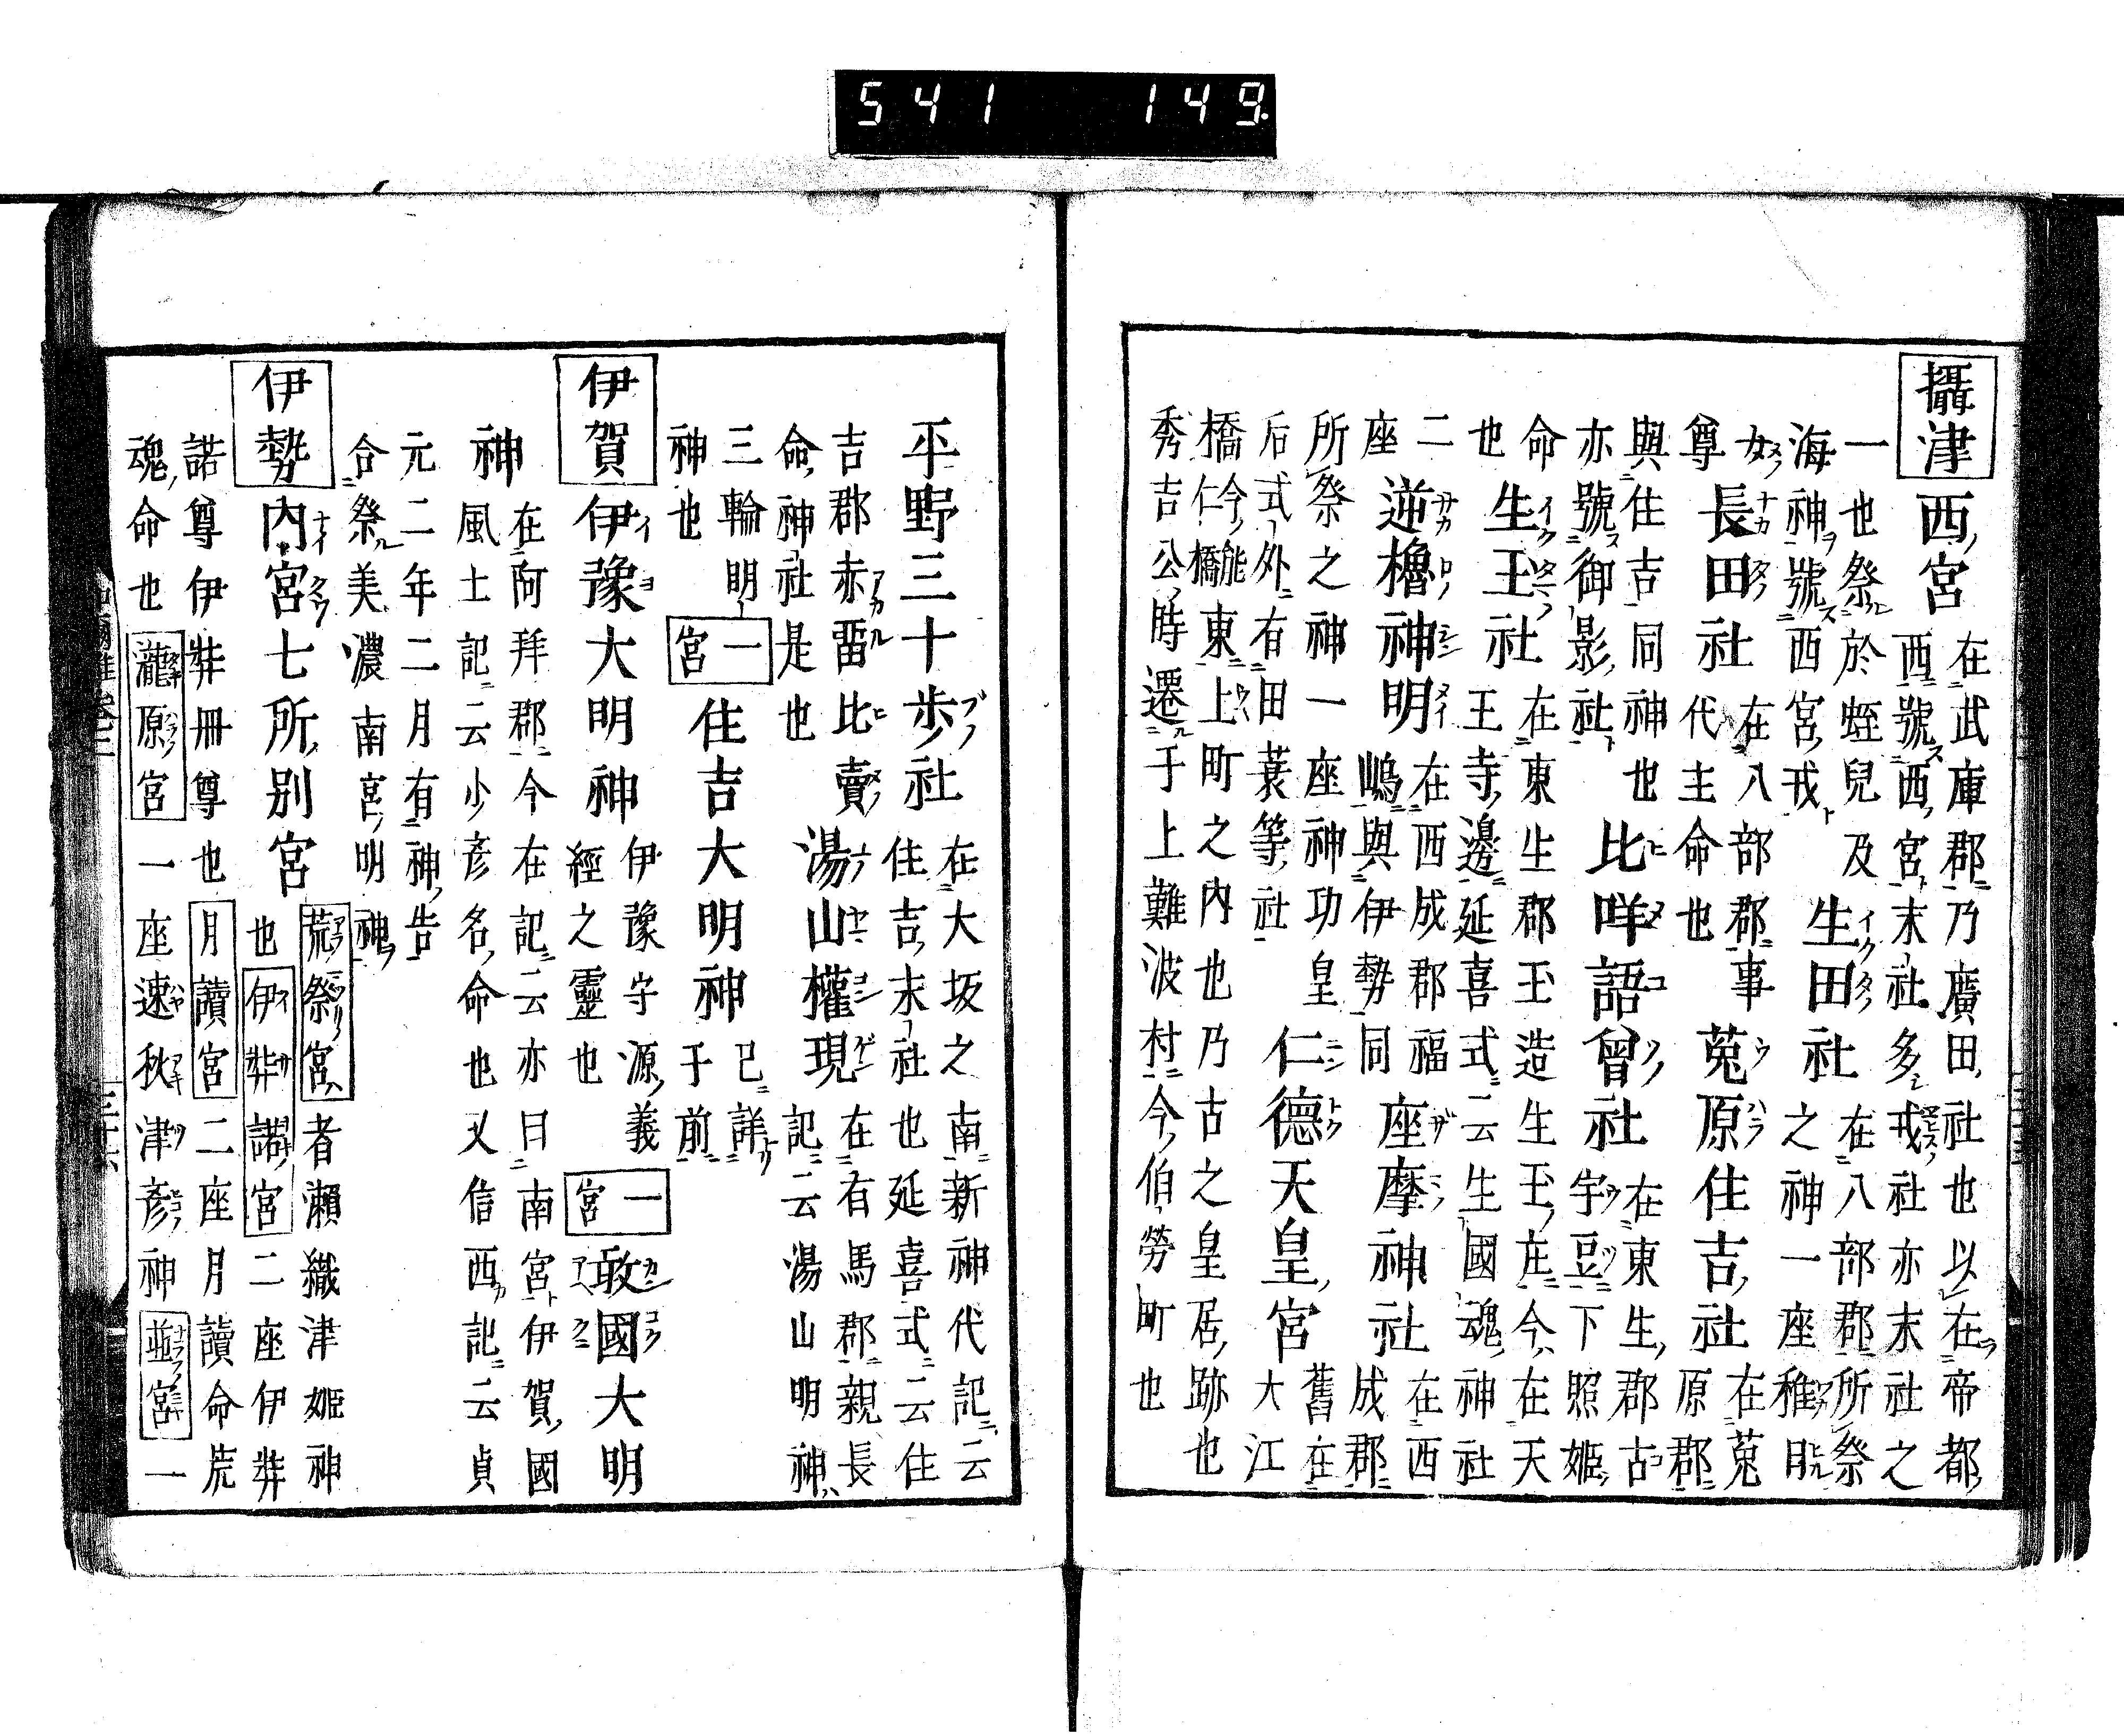 541 149
攝津
西宮
在武庫郡乃廣田社也以在帝都
西號西宮末社多戎社亦末社之
一也祭於蛭兒及
海神號西宮戎
生田社
在八部郡所祭
之神一座稚日
女
尊
長田社
在八部郡事
代主命也
菟原住吉社
在菟
原郡
與住吉同神也
亦號御影社
比咩語曾社
在東生郡古
宇豆下照姫
命
也
生玉社
在東生郡玉造生玉庄今在天
王寺邊延喜式云生國魂神社
二
座
逆櫓神明
在西成郡福
嶋與伊勢同
座摩神社
在西
成郡
所祭之神一座神功皇
后式外有田蓑等社
仁德天皇宮
舊在
大江
橋今仁橋能東上町之内也乃古之皇居跡也
秀吉公時遷于上難波村今伯勞町也
平野三十歩社
在大坂之南新神代記云
住吉末社也延喜式云住
吉郡赤畱比賣
命神社是也
湯山權現
在有馬郡親長
記云湯山明神
三輪明
神也
一宮
住吉大明神
已詳
于前
伊賀
伊豫大明神
伊豫守源義
經之靈也
一宮
敢國大明
神
在阿拜郡今在記云亦曰南宮伊賀國
風土記云少彦名命也又信西記云貞
元二年二月有神告
合祭美濃南宮明神
伊勢
内宮七所別宮
荒祭宮者瀨織津姫神
也伊弉諾宮二座伊弉
諾尊伊弉冊尊也月讀宮二座月讀命荒
魂命也瀧原宮一座速秋津彦神並宮一